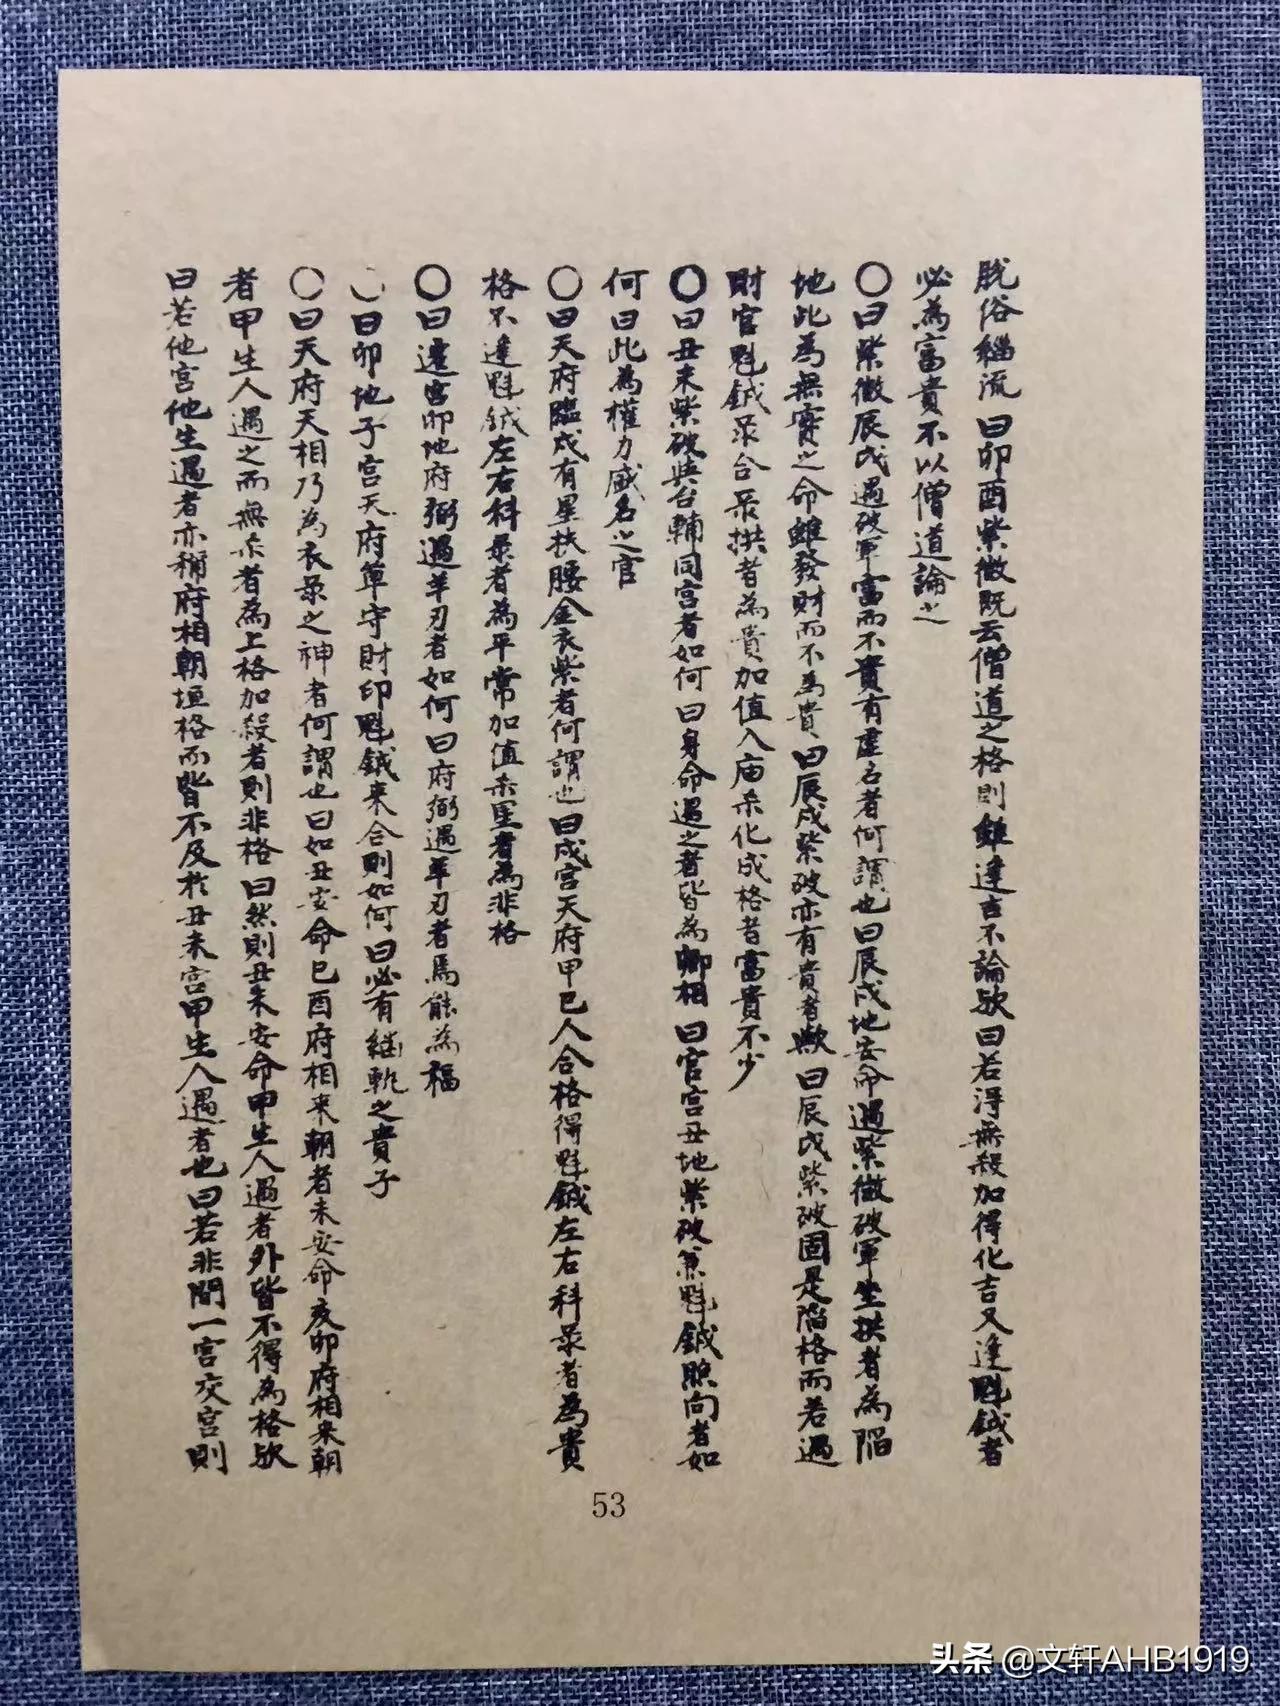 脫俗緇流曰卯酉紫微既云僧道之格則雖逢吉不論欤曰若浮無殺加得化吉又逢魁鉞者
必為富貴不以僧道論之
〇曰紫微辰戌遇破軍富而不貴有虛名者何謂也曰辰戌地安命遇紫微破軍坐拱者為陷
地此為無實之命雖發財而不為貴曰辰戌紫破亦有貴者歟曰辰戌紫破固是陷格而若遇
財官魁鉞彔合彔拱者為貴加值入庙杀化成格者富貴不少
〇曰丑未紫破與台輔同宮者如何曰身命遇之者皆為卿相曰官宮丑地紫破兼魁鉞照向者如
何曰此為權力威名之官
〇曰天府臨戌有星扶腰金衣紫者何謂也曰戌宮天府甲己人合格得魁鉞左右科彔者為貴
格不逢魁鉞左右科彔者為平常加值杀星者為非格
〇曰遷宮卯地府弼遇羊刃者如何曰府弼遇羊刃者焉能為福
〇曰卯地子宮天府單守財印魁鉞来合則如何曰必有継軌之貴子
〇曰天府天相乃為衣彔之神者何謂也曰如丑安命巳酉府相来朝者未安命亥卯府相来朝
者甲生人遇之而無杀者為上格加殺者則非格曰然則丑未安命甲生人遇者外皆不得為格欤
曰若他宮他生遇者亦稱府相朝垣格而皆不及於丑未宮甲生人遇者也曰若非間一宮交宮則
53
头条 @文轩AHB1919